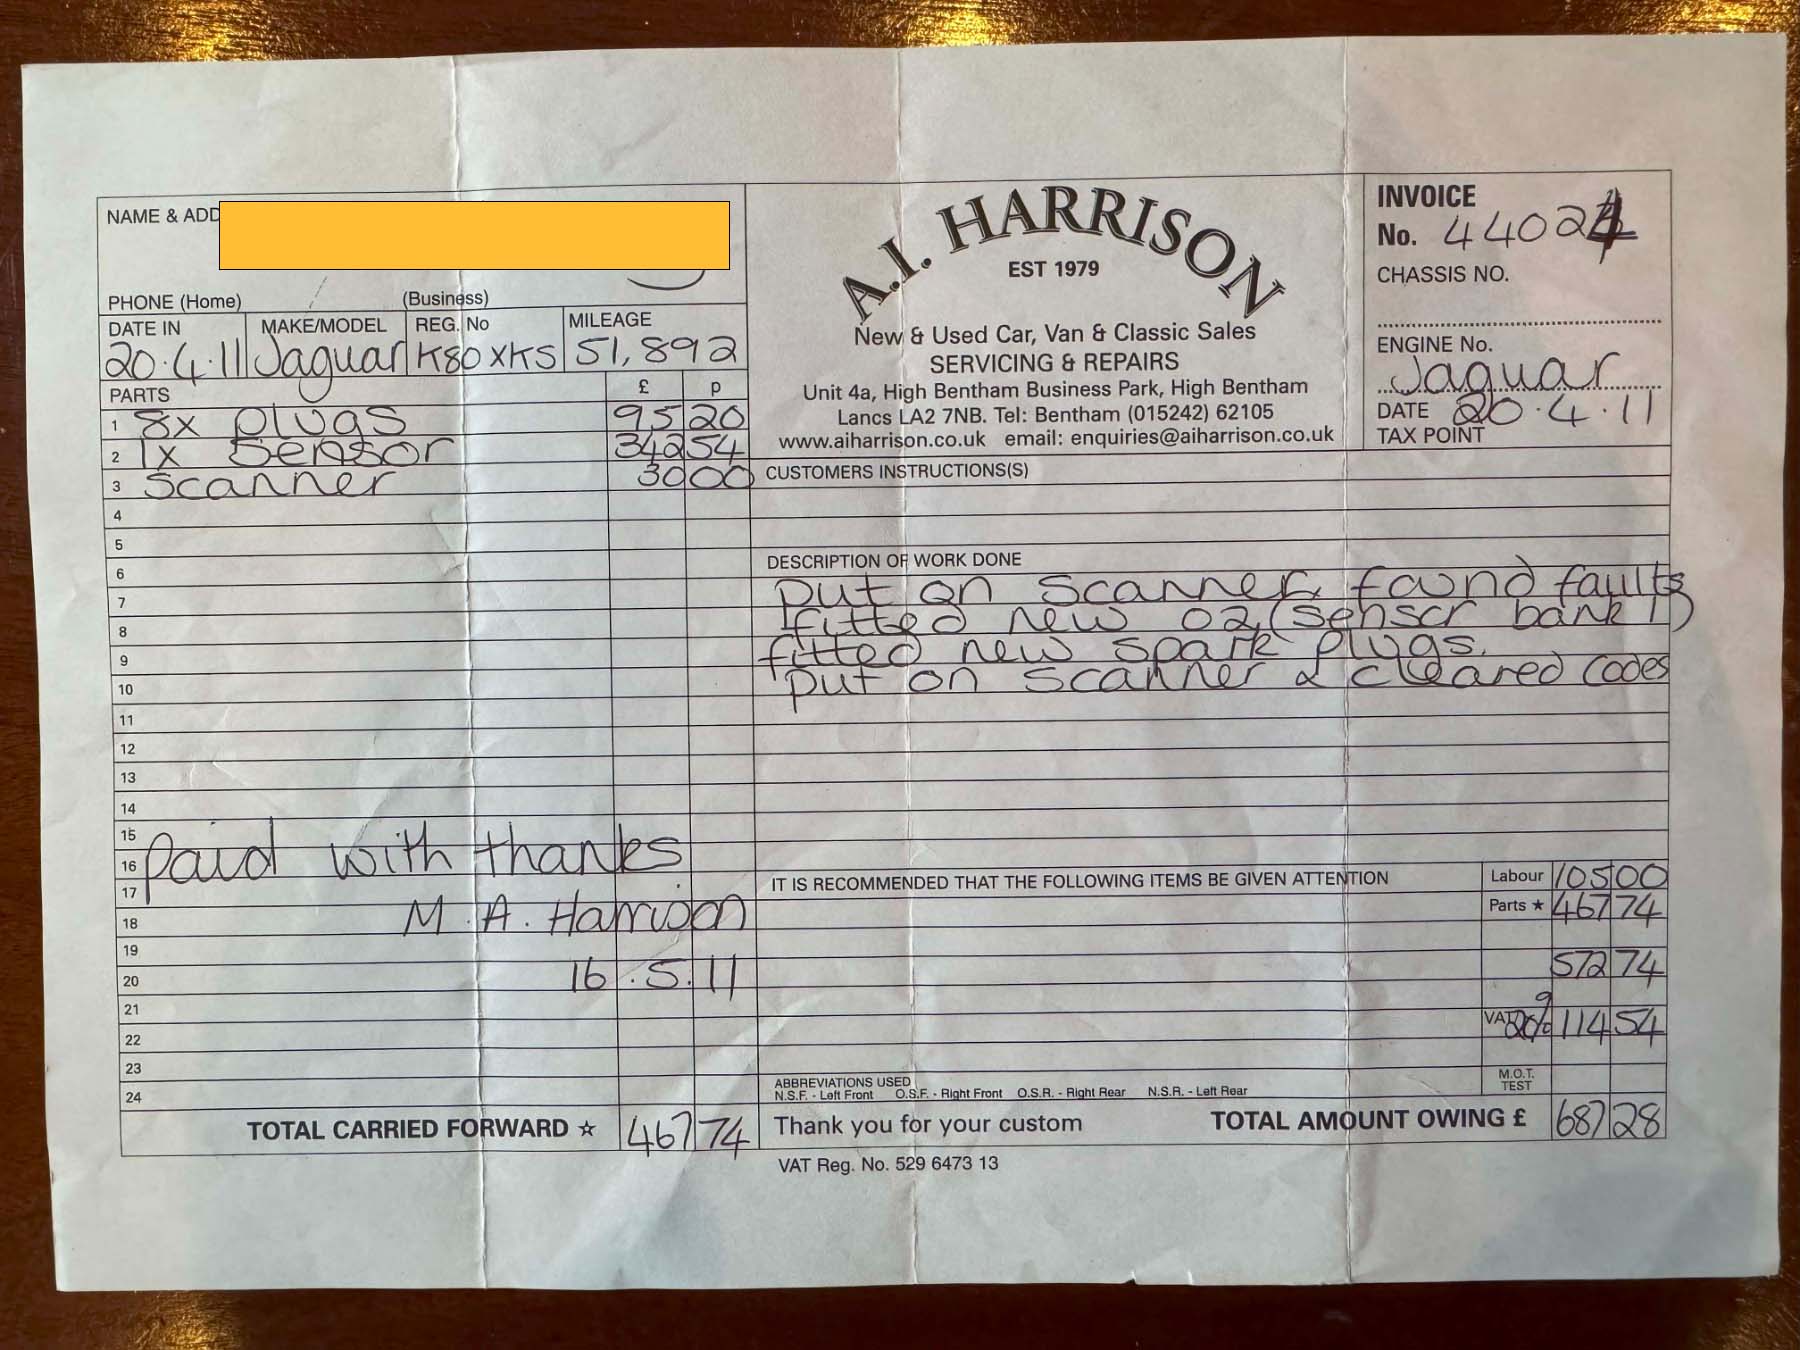 NAME & ADD
PHONE (Home) (Business)
DATE IN MAKE/MODEL REG. No MILEAGE
20.4.11 Jaguar K80 XKS 51,892
PARTS £ p
1 8x plugs 95 20
2 1x Sensor 342 54
3 Scanner 30 00
4
5
6
7
8
9
10
11
12
13
14
15
16 Paid with thanks
17
18 M.A. Harrison
19
20 16.5.11
21
22
23
24
TOTAL CARRIED FORWARD ☆ 467 74
A.I. HARRISON
EST 1979
New & Used Car, Van & Classic Sales
SERVICING & REPAIRS
Unit 4a, High Bentham Business Park, High Bentham
Lancs LA2 7NB. Tel: Bentham (015242) 62105
www.aiharrison.co.uk email: enquiries@aiharrison.co.uk
INVOICE
No. 4402
CHASSIS NO.
ENGINE No.
Jaguar
DATE 20.4.11
TAX POINT
CUSTOMERS INSTRUCTIONS(S)
DESCRIPTION OF WORK DONE
put on scanner, found faults
fitted new O2 (sensor bank 1)
fitted new spark plugs.
put on scanner & cleared codes
IT IS RECOMMENDED THAT THE FOLLOWING ITEMS BE GIVEN ATTENTION
Labour 105 00
Parts ★ 467 74
572 74
VAT 20% 114 54
M.O.T.
TEST
ABBREVIATIONS USED
N.S.F. - Left Front O.S.F. - Right Front O.S.R. - Right Rear N.S.R. - Left Rear
Thank you for your custom TOTAL AMOUNT OWING £ 687 28
VAT Reg. No. 529 6473 13